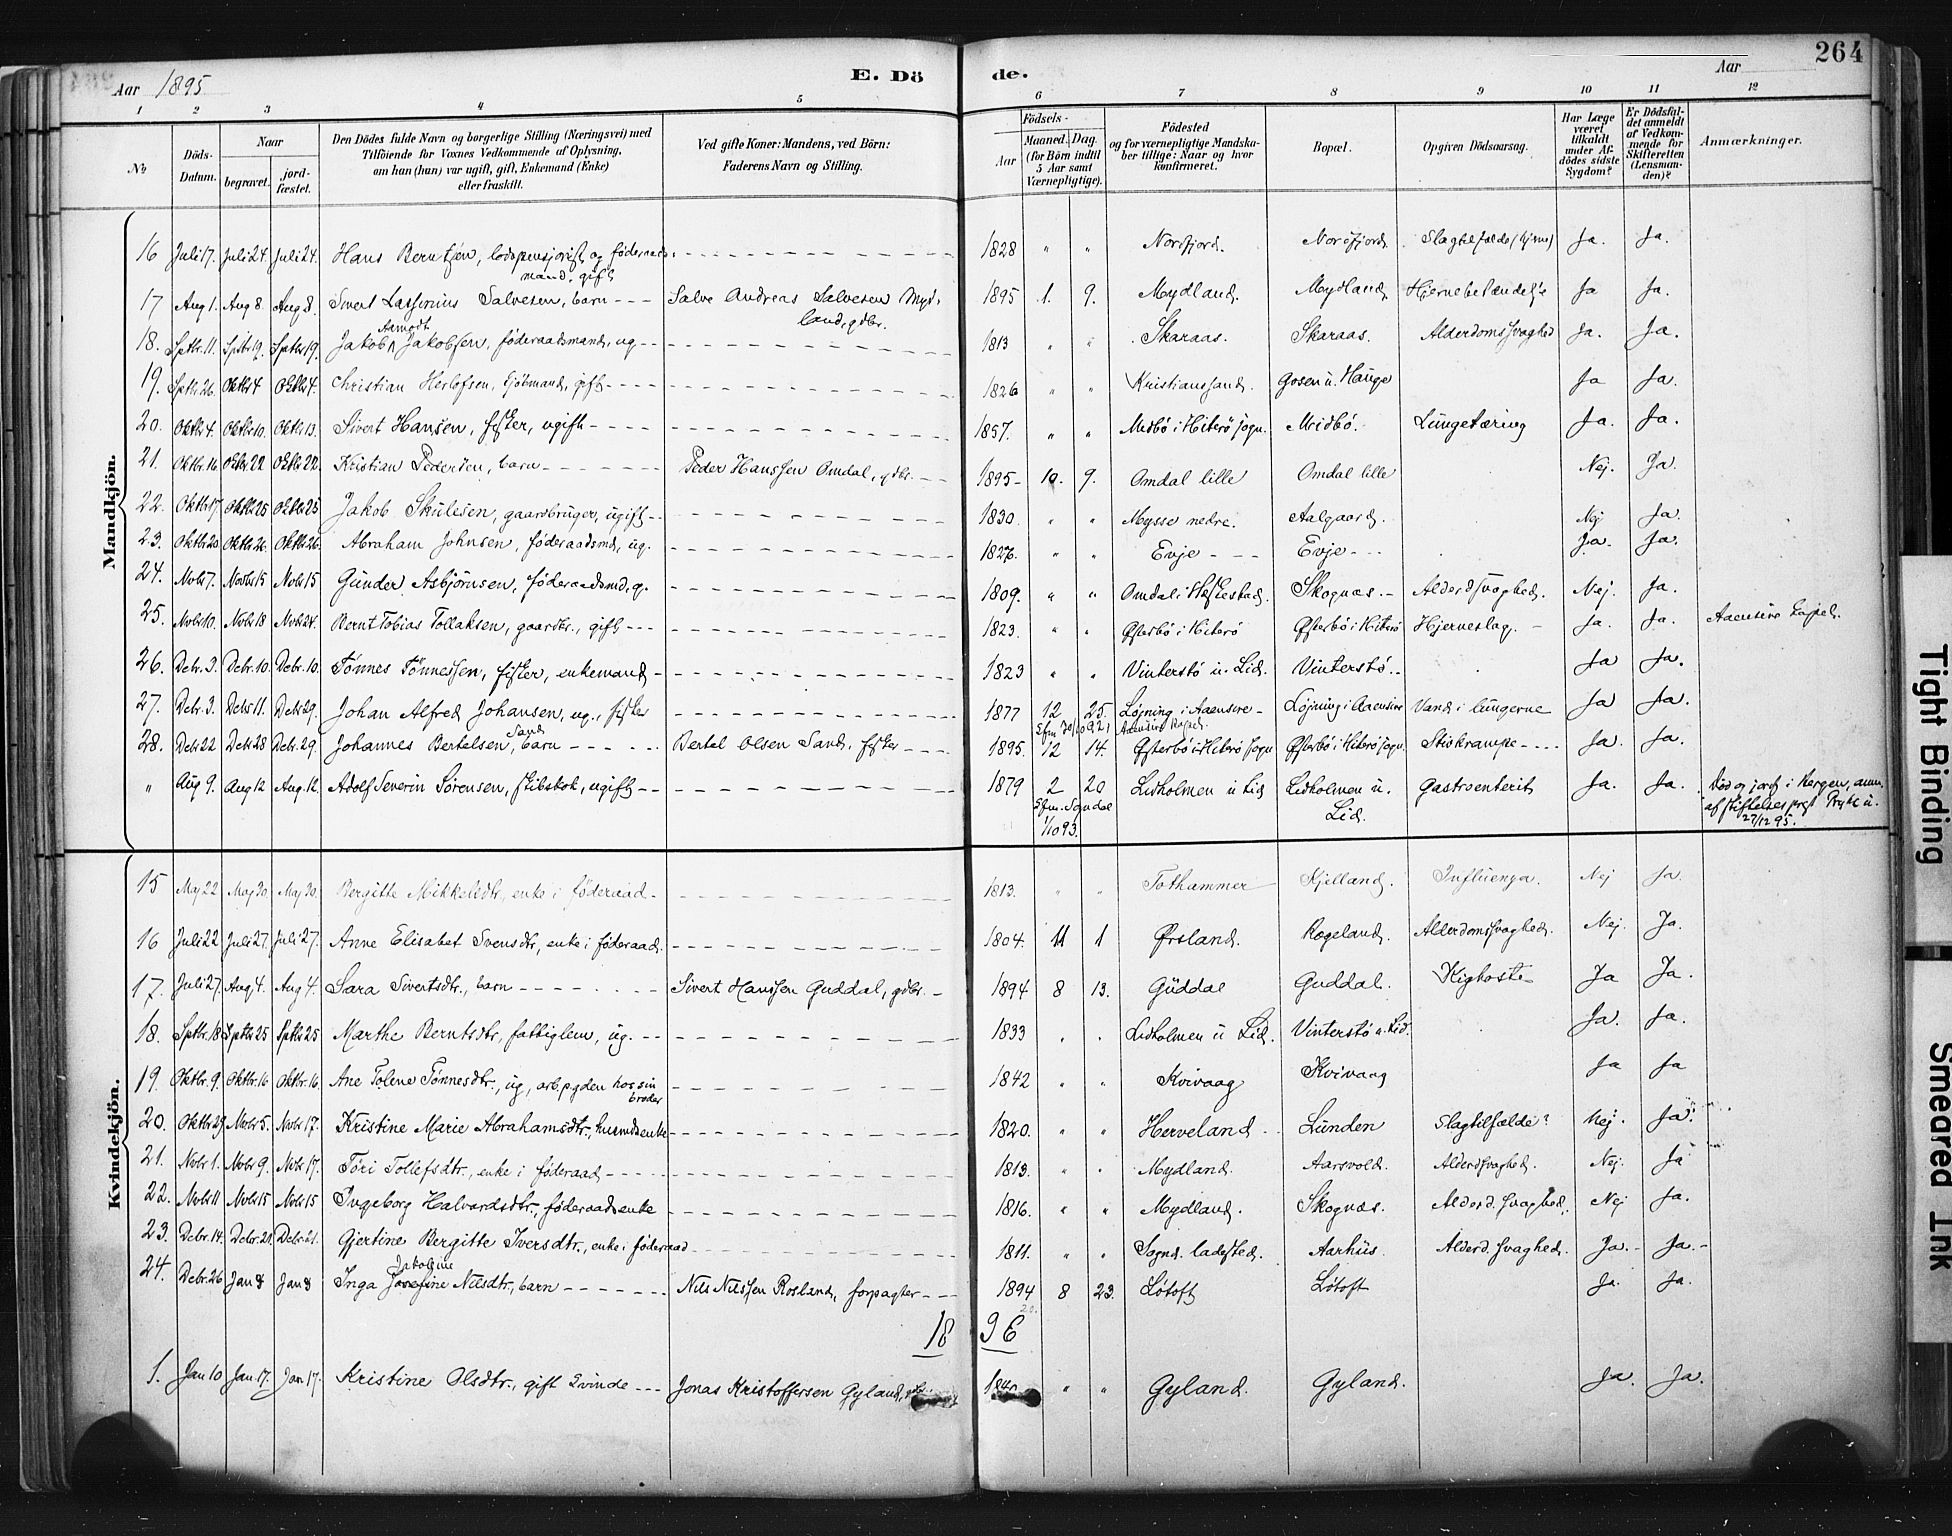 264
Aar 1895
E. Dö de.
Aar
1 2 3 4 5 6 7 8 9 10 11 12
No
Döds-Datum.
Naar
begravet.
jord-fæstet.
Den Dödes fulde Navn og borgerlige Stilling (Næringsvei) med Tilföiende for Voxnes Vedkommende af Oplysning, om han (hun) var ugift, gift, Enkemand (Enke) eller fraskilt.
Ved gifte Koner: Mandens, ved Börn: Faderens Navn og Stilling.
Födsels-
Aar
Maaned. Dag.
(for Börn indtil 5 Aar samt Værnepligtige).
Födested og for værnepligtige Mandskaber tillige: Naar og hvor konfirmeret.
Bopæl.
Opgiven Dödsaarsag.
Har Læge været tilkaldt under Afdödes sidste Sygdom?
Er Dödsfaldet anmeldt af Vedkommende for Skifteretten (Lensmanden)?
Anmærkninger.
Mandkjön.
16 Juli 17. Juli 24. Juli 24. Hans Berntsen, lodspensjonist og føderaadsmand, gift 1828 " " Nordfjord. Nordfjord. Slagtilfælde (hjerne) Ja. Ja.
17 Aug 1. Aug 8. Aug 8. Sivert Lasserius Salvesen, barn Salve Andreas Salvesen Mydland, gdbr. 1895 1. 9. Mydland. Mydland. Hjernebetændelse Ja Ja.
18. Sptbr. 11. Sptbr 19. Sptbr 19. Jakob Aamodt Jakobsen, føderaadsmand, ug 1813 " " Skaraas. Skaraas. Alderdomssvaghed Ja. Ja.
19. Sptbr. 26. Oktbr 4 Oktbr 4. Christian Herlofsen, Kjøbmand, gift 1826 " " Kristianssand. Gosen u. Hauge Ja Ja.
20. Oktbr 4. Oktbr 10. Oktbr 13. Sivert Hansen, fisker, ugift 1857. " " Midbø i Hiterø sogn. Midbø. Lungetæring Ja. Ja.
21. Oktbr. 16 Oktbr 22 Oktbr 22. Kristian Pedersen, barn Peder Hanssen Omdal, gdbr. 1895 10. 9. Omdal lille Omdal lille Nej. Ja.
22. Oktbr 17. Oktbr 25 Oktbr 25 Jakob Skulesen, gaardbruger, ugift 1830. " " Mysse nedre. Aalgaard. Nej Ja.
23. Oktbr 20. Oktbr 26. Oktbr 26. Abraham Johnsen, føderaadsmd, ug. 1826. " " Evje Evje Ja. Ja.
24. Novbr 7. Novbr 15 Novbr 15 Gunder Asbjørnsen, føderaadsmd, g. 1809. " " Omdal i Hæskestad. Skognæs. Alderdsvaghed. Nej. Ja.
25. Novbr 10. Novbr 18 Novbr 24. Bernt Tobias Tollaksen, gaardbr., gift 1823. " " Østerbø i Hiterø Østerbø i Hiterø Hjerneslag. Ja. Ja. Aaensire Kapel.
26. Debr. 3. Debr. 10. Debr. 10. Tønnes Tønnessen, fisker, enkemand 1823 " " Vinterstø u. Lid. Vinterstø. Ja Ja.
27. Debr. 3. Debr 11. Debr 29. Johan Alfred Johansen, ug., fisker 1877 12 25. Løgning i Aaensire Løgning i Aaensire Vand i lungerne Ja Ja.
28. Debr 22 Debr 28 Debr. 29. Johannes Bertelsen Sand, barn Bertel Olsen Sand, fisker 1895. 12 14. Østerbø i Hiterø sogn Østerbø i Hiterø sogn. Stivkrampe Ja. Ja.
" Aug 9. Aug 12 Aug. 12. Adolf Severin Sørensen, skibskok, ugift 1879 2 20 Lidholmen u Lid Lidholmen u. Lid. Gastroenterit Ja. Ja. Død og jordf i Bergen, anm. af stiftelsespræst 27/12 95.
cfm. Sogndal 1/10 93.
Kvindekjön.
15 Maj 22 Maj 30. Maj 30. Bergitte Mikkelsdtr, enke i føderaad 1813. " " Tothammer Kjelland. Influenza. Nej Ja.
16 Juli 22 Juli 27. Juli 27. Anne Elisabet Svensdtr, enke i føderaad. 1804. 11 1 Ørsland. Rægeland. Alderdomssvaghed. Nej. Ja.
17. Juli 27. Aug 4. Aug 4. Sara Sivertsdtr., barn Sivert Hanssen Guddal, gdbr. 1894 8 13. Guddal Guddal. Kighoste Ja Ja.
18. Sptbr. 18 Sptbr 25 Sptbr 25 Marthe Berntsdtr, fattiglem, ug. 1833 " " Lidholmen u Lid. Vinterstø u. Lid. Ja. Ja.
19. Oktbr. 9. Oktbr. 16 Oktbr. 16. Ane Tolene Tønnesdtr., ug, arb.pgden hos sin broder 1842 " " Kvivaag Kvivaag Ja Ja
20. Oktbr 29. Novbr 5. Novbr 17. Kristine Marie Abrahamsdtr., husmdsenke 1820. " " Herveland Lunden Slagtilfælde? Nej. Ja.
21. Novbr 1. Novbr 9. Novbr 17. Tøri Tollefsdtr., enke i føderaad 1813. " " Mydland. Aarsvold. Alderdsvaghed. Nej. Ja
22. Novbr 11 Novbr 15 Novbr 15 Ingeborg Halvardsdtr., føderaadsenke 1816. " " Mydland. Skognæs. Alderd. svaghed. Nej Ja.
23. Debr. 14. Debr. 21. Debr. 21. Gjertine Bergitte Iversdtr., enke i føderaad 1811. " " Sognd. ladested. Aarhus. Alderd. svaghed. Ja. Ja.
24. Debr. 26 Jan 8 Jan 8 Inga Jakobine Josefine Nilsdtr., barn Nils Nilssen Rosland, forpagter 1894 8 23. Løtoft Løtoft Ja. Ja.
1896
1. Jan 10 Jan 17. Jan 17. Kristine Olsdtr., gift Qvinde Jonas Kristoffersen Gyland, gbr. 1840 " " Gyland. Gyland. Ja. Ja.
Tight Binding
Smeared Ink